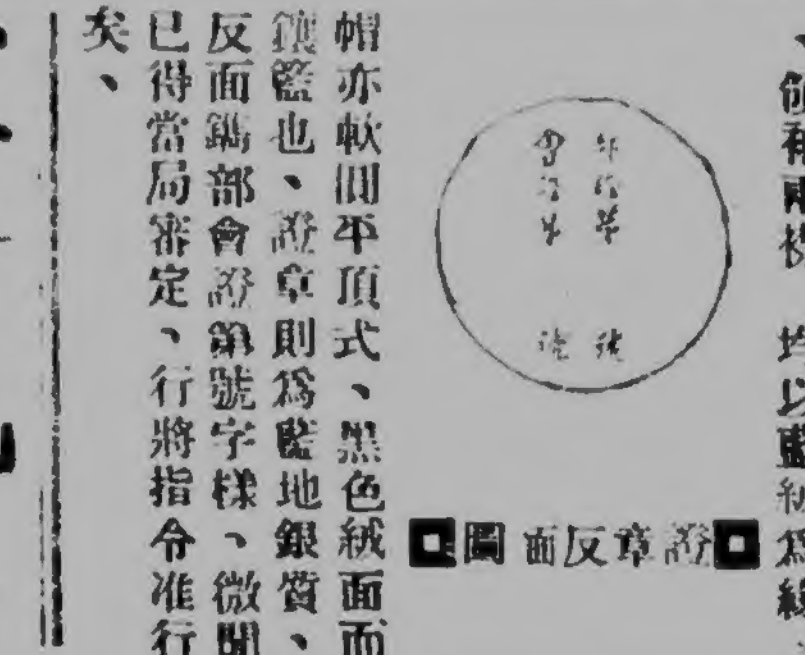 、領和兩襟　均以藍絨爲緣、
證章反面圖
號
會證第
號
帽亦軟胎平頂式、黑色絨面而
鑲籃也、證章則爲藍地銀質、
反面鐫部會證第號字樣、微聞
已得當局審定、行將指令准行
矣、